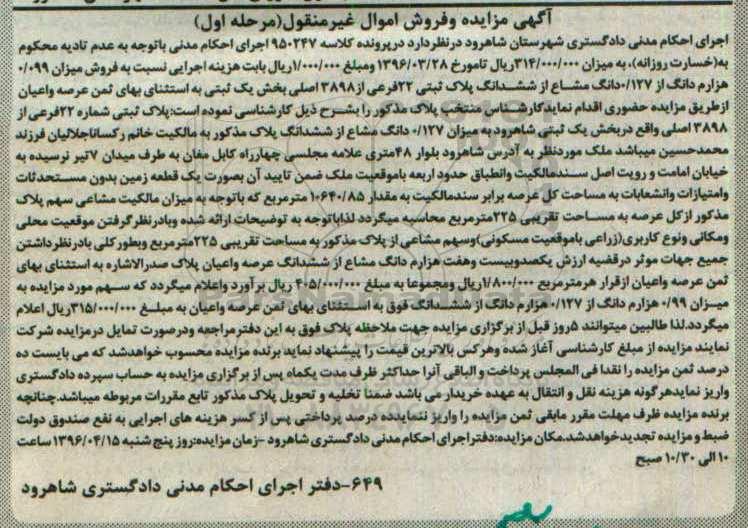 آگهی مزایده وفروش اموال غیرمنقول(مرحله اول)
اجرای احکام مدنی دادگستری شهرستان شاهرود درنظردارد درپرونده کلاسه ۹۵۰۲۴۷ اجرای احکام مدنی باتوجه به عدم تادیه محکوم
به(خسارت روزانه)، به میزان ۳۱۴/۰۰۰/۰۰۰ریال تامورخ ۱۳۹۶/۰۳/۲۸ ومبلغ ۱/۰۰۰/۰۰۰ریال بابت هزینه اجرایی نسبت به فروش میزان ۰/۰۹۹
هزارم دانگ از ۰/۱۲۷دانگ مشاع از ششدانگ پلاک ثبتی ۲۲فرعی از۳۸۹۸ اصلی بخش یک ثبتی به استثنای بهای ثمن عرصه واعیان
ازطریق مزایده حضوری اقدام نمایدکارشناس منتخب پلاک مذکور را بشرح ذیل کارشناسی نموده است:پلاک ثبتی شماره ۲۲فرعی از
۳۸۹۸ اصلی واقع دربخش یک ثبتی شاهرود به میزان ۰/۱۲۷ دانگ مشاع از ششدانگ پلاک مذکور به مالکیت خانم رکسانا جلالیان فرزند
محمدحسین میباشد ملک موردنظر به آدرس شاهرود بلوار ۴۸متری علامه مجلسی چهارراه کابل مغان به طرف میدان ۷تیر نرسیده به
خیابان امامت و رویت اصل سندمالکیت وانطباق حدود اربعه باموقعیت ملک ضمن تایید آن بصورت یک قطعه زمین بدون مستحدثات
وامتیازات وانشعابات به مساحت کل عرصه برابر سندمالکیت به مقدار ۱۰۶۴۰/۸۵ مترمربع که باتوجه به میزان مالکیت مشاعی سهم پلاک
مذکور ازکل عرصه به مساحت تقریبی ۲۲۵مترمربع محاسبه میگردد لذاباتوجه به توضیحات ارائه شده وبادرنظرگرفتن موقعیت محلی
ومکانی ونوع کاربری(زراعی باموقعیت مسکونی)وسهم مشاعی از پلاک مذکور به مساحت تقریبی ۲۲۵مترمربع وبطورکلی بادرنظرداشتن
جمیع جهات موثر درقضیه ارزش یکصدوبیست وهفت هزارم دانگ مشاع از ششدانگ عرصه واعیان پلاک صدرالاشاره به استثنای بهای
ثمن عرصه واعیان ازقرار هرمترمربع ۱/۸۰۰/۰۰۰ریال ومجموعا به مبلغ ۴۰۵/۰۰۰/۰۰۰ ریال برآورد واعلام میگردد که سهم مورد مزایده به
میزان ۰/۹۹ هزارم دانگ از ۰/۱۲۷ هزارم دانگ از ششدانگ فوق به استثنای بهای ثمن عرصه واعیان به مبلغ ۳۱۵/۰۰۰/۰۰۰ریال اعلام
میگردد.لذا طالبین میتوانند ۵روز قبل از برگزاری مزایده جهت ملاحظه پلاک فوق به این دفترمراجعه ودرصورت تمایل درمزایده شرکت
نمایند مزایده از مبلغ کارشناسی آغاز شده وهرکس بالاترین قیمت را پیشنهاد نماید برنده مزایده محسوب خواهدشد که می بایست ده
درصد ثمن مزایده را نقدا فی المجلس پرداخت و الباقی آنرا حداکثر ظرف مدت یکماه پس از برگزاری مزایده به حساب سپرده دادگستری
واریز نمایدهرگونه هزینه نقل و انتقال به عهده خریدار می باشد ضمنا تخلیه و تحویل پلاک مذکور تابع مقررات مربوطه میباشد.چنانچه
برنده مزایده ظرف مهلت مقرر مابقی ثمن مزایده را واریز ننماید ده درصد پرداختی پس از کسر هزینه های اجرایی به نفع صندوق دولت
ضبط و مزایده تجدیدخواهدشد.مکان مزایده:دفتراجرای احکام مدنی دادگستری شاهرود -زمان مزایده:روز پنج شنبه ۱۳۹۶/۰۴/۱۵ ساعت
۱۰ الی ۱۰/۳۰ صبح
۶۴۹-دفتر اجرای احکام مدنی دادگستری شاهرود